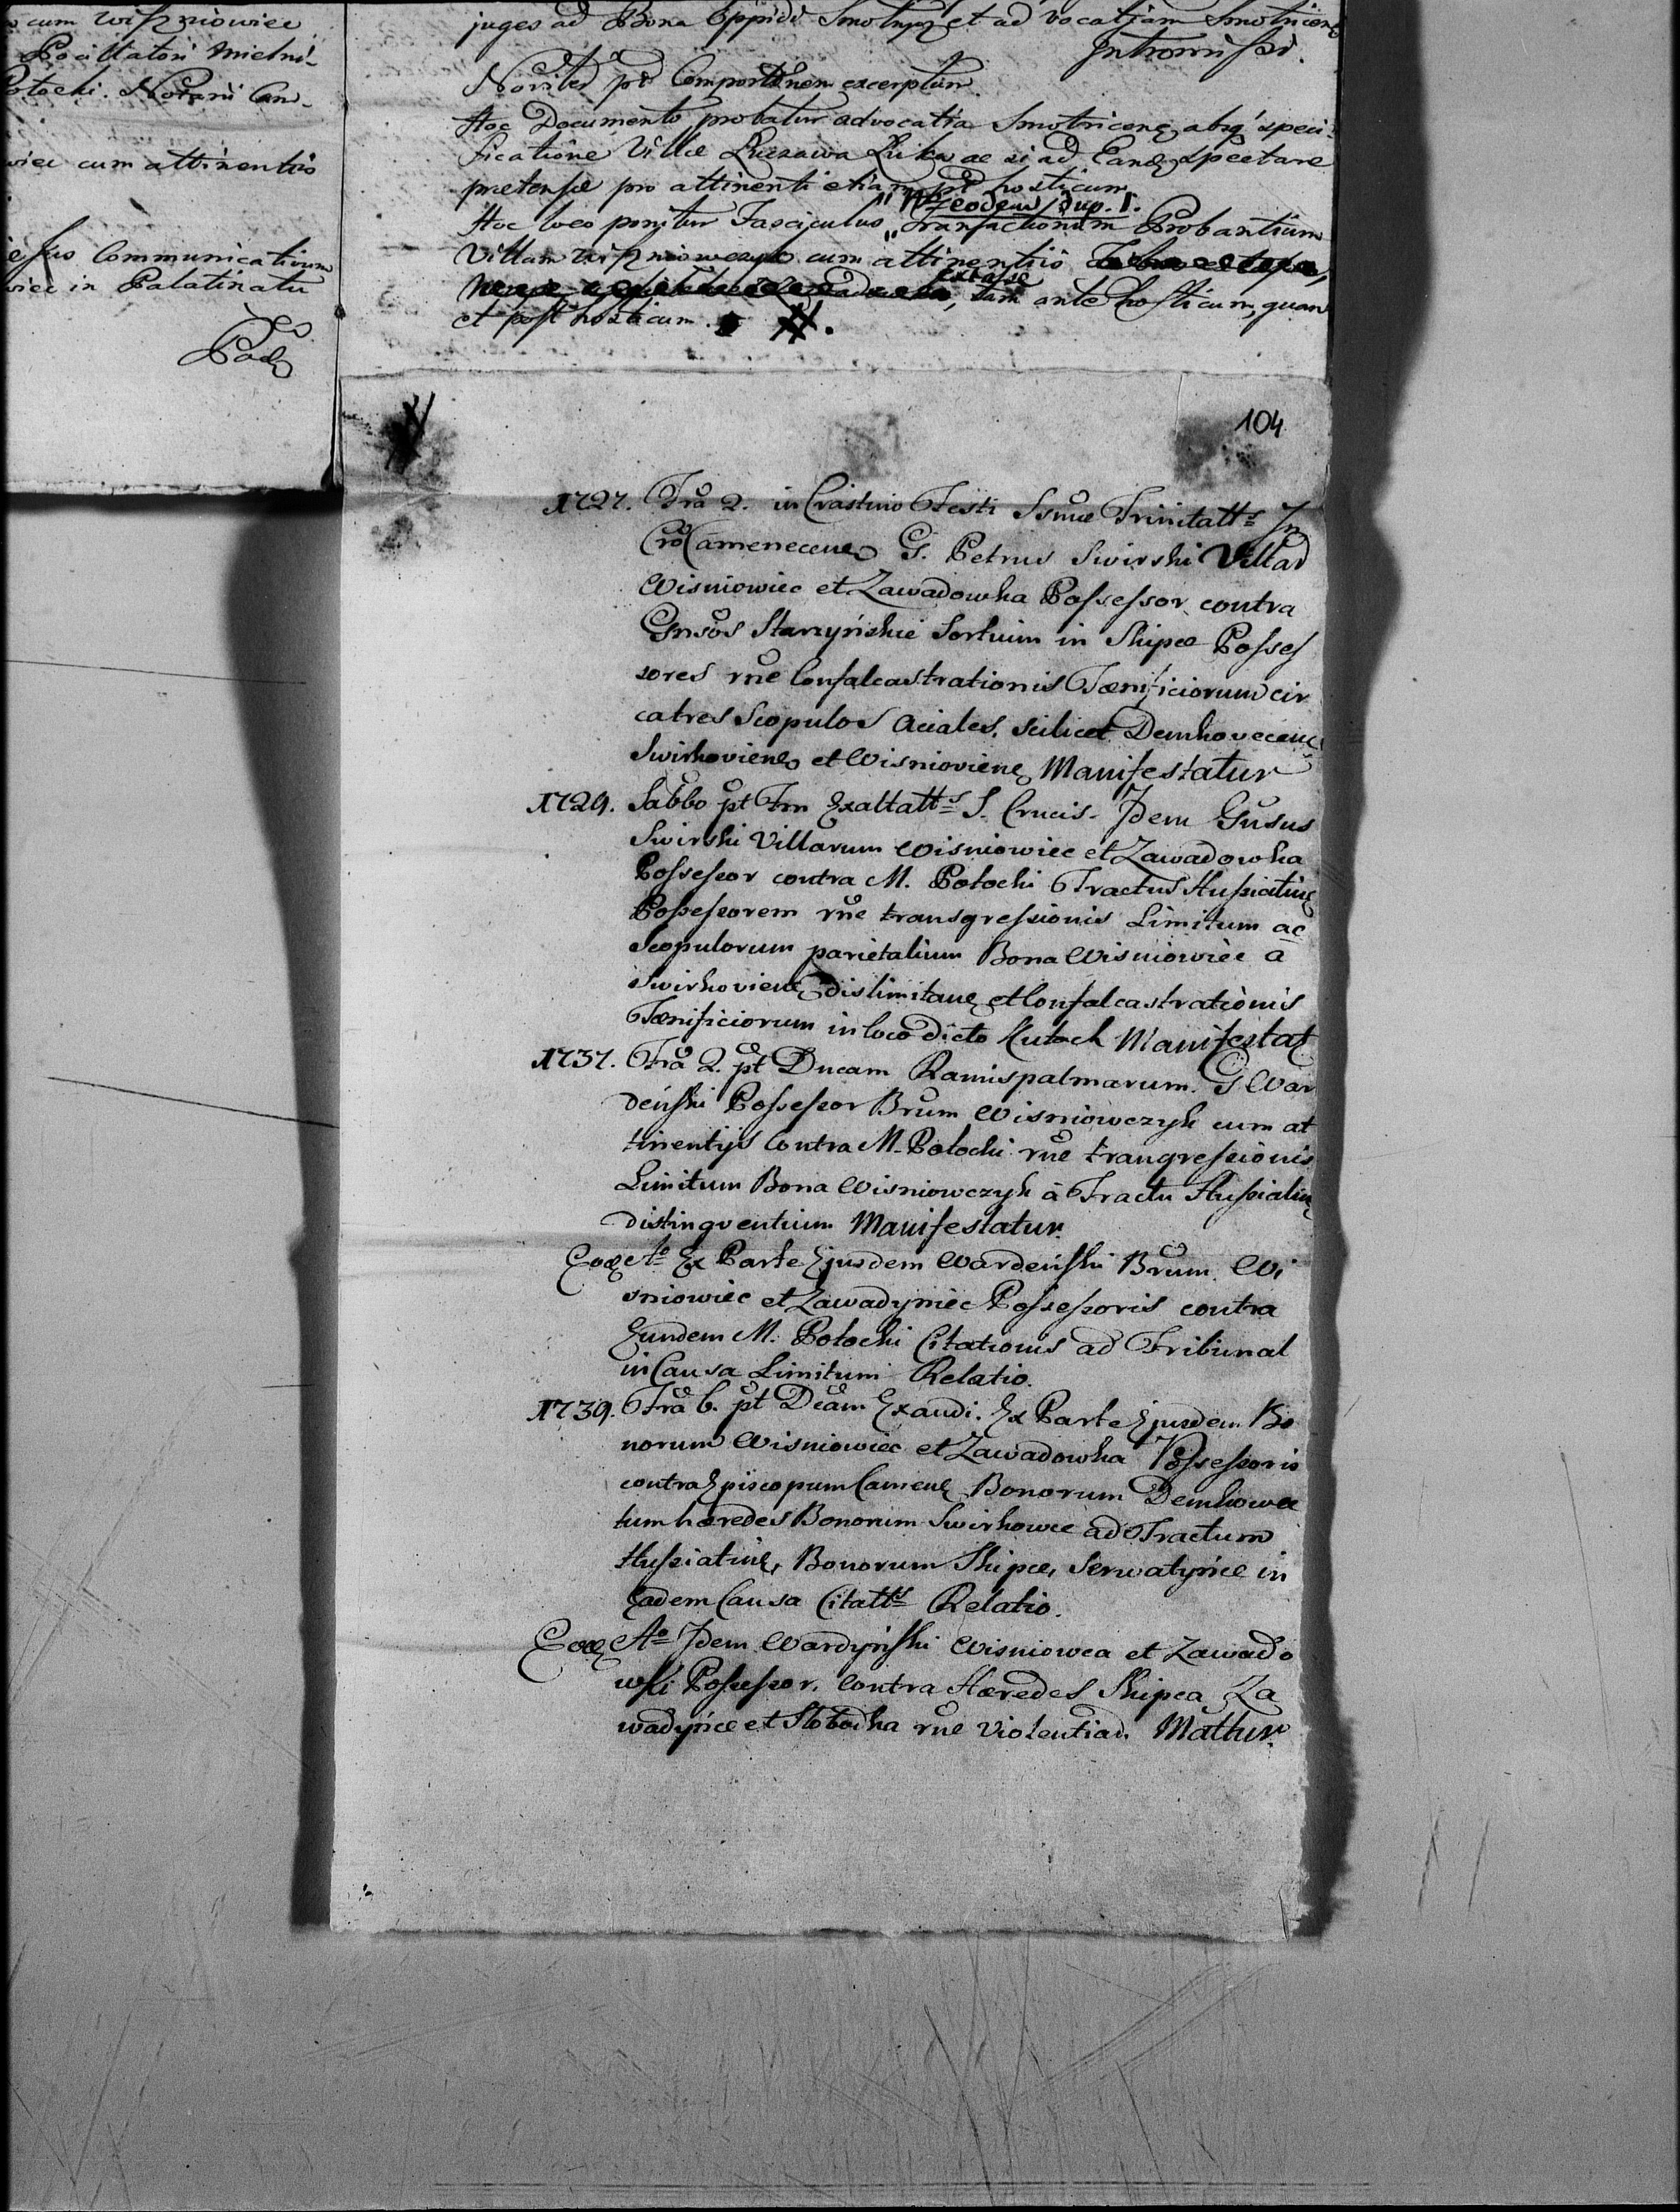 cum Wiszniowiec
Pocillatori Mielni-
Potocki. Notarii Cam-
wiec cum attinentiis
Communicativum
wiec in Palatinatu
Pod
juges ad Bona Oppidi Smotrycz et ad vocatjam Smotricen
Intromissi.
Noviter pt Comportnem excerptum
Hoc Documento probatur advocatia Smotricen absq speci-
ficatione Villæ Luka ac si ad Eand spectare
prætensæ pro attinenti etiam pt hosticum
eodem sup. 1.
Hoc loco ponitur Fasciculus „Transactionum Probantium
Villam Wiszniowczyk cum attinentiis
extasse
tam ante hosticum, quam
et post hosticum.
104
1727. Fra 2. in Crastino Festi Ssmæ Trinitatts In
Cro Camenecen G. Petrus Swirski Villar
Wisniowiec et Zawadowka Possessor contra
Gnsos Starzyńskie Sortium in Skipce Posses
sores rne Confalcastrationis Fænificiorum cir
ca tres Scopulos Aciales, scilicet Demkovecen
Swirkovien et Wisniovien Manifestatur
1729. Sabbo pt Fm Exaltatts S. Crucis. Idem Gnsus
Swirski Villarum Wisniowiec et Zawadowka
Possessor contra M. Potocki Tractus Husiatin
Possessorem rne transgressionis Limitum ac
Scopulorum parietalium Bona Wisniowiec à
Swirkovien dislimitan et Confalcastrationis
Fænificiorum in loco dicto Kutach Manifestat
1737. Fra 2. pt Dncam Ramispalmarum. G War
deński Possessor Brum Wisniowczyk cum at
tinentijs Contra M. Potocki rne trangressionis
Limitum Bona Wisniowczyk à Tractu Husiatin
distinguentium Manifestatur.
Eod Ao Ex Parte Ejusdem Wardeński Brum Wi
sniowiec et Zawadyniec Possessoris contra
Eundem M. Potocki Citationis ad Tribunal
in Causa Limitum Relatio.
1739. Fra 6. pt Dcam Exaudi. Ex Parte Ejusdem Bo
norum Wisniowiec et Zawadowka Possessoris
contra Episcopum Camen Bonorum Demkowce
tum hæredes Bonorum Swirkowce ad Tractum
Husiatin, Bonorum Skipce, Serwatyńce in
eadem Causa Citatts Relatio.
Eod Ao Idem Wardyński Wisniowca et Zawado
wki Possessor. Contra Hæredes Skipca Za
wadyńce et Slobodka rne Violentiar. Mattur.